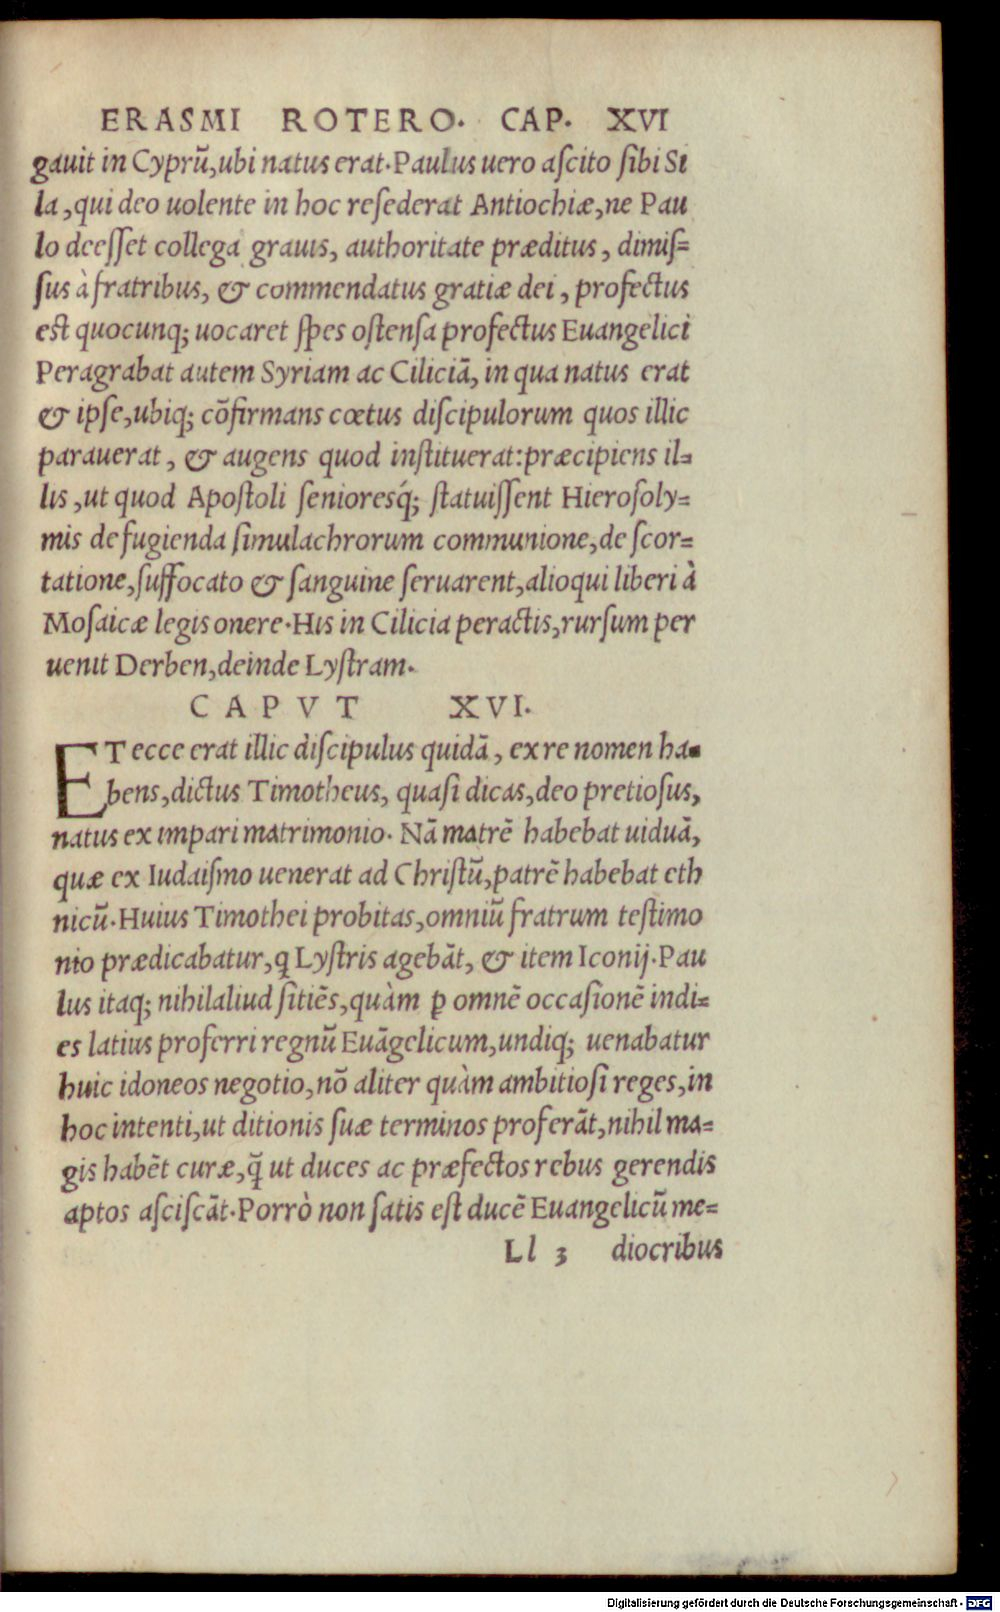 ERASMI ROTERO. CAP. XVI
gauit in Cyprũ, ubi natus erat. Paulus uero ascito sibi Si
la, qui deo uolente in hoc resederat Antiochiæ, ne Pau
lo deesset collega grauis, authoritate præditus, dimis=
sus à fratribus, & commendatus gratiæ dei, profectus
est quocunq; uocaret spes ostensa profectus Euangelici
Peragrabat autem Syriam ac Ciliciã, in qua natus erat
& ipse, ubiq; cõfirmans cœtus discipulorum quos illic
parauerat, & augens quod instituerat: præcipiens il=
lis, ut quod Apostoli senioresq́; statuissent Hierosoly=
mis de fugienda simulachrorum communione, de scor=
tatione, suffocato & sanguine seruarent, alioqui liberi à
Mosaicæ legis onere. His in Cilicia peractis, rursum per
uenit Derben, deinde Lystram.
CAPVT XVI.
ET ecce erat illic discipulus quidã, ex re nomen ha=
bens, dictus Timotheus, quasi dicas, deo pretiosus,
natus ex impari matrimonio. Nã matrẽ habebat uiduã,
quæ ex Iudaismo uenerat ad Christũ, patrẽ habebat eth
nicũ. Huius Timothei probitas, omniũ fratrum testimo
nio prædicabatur, q Lystris agebãt, & item Iconij. Pau
lus itaq; nihil aliud sitiẽs, quàm ꝑ omnẽ occasionẽ indi=
es latius proferri regnũ Euãgelicum, undiq; uenabatur
huic idoneos negotio, nõ aliter quàm ambitiosi reges, in
hoc intenti, ut ditionis suæ terminos proferãt, nihil ma=
gis habẽt curæ, q̃ ut duces ac præfectos rebus gerendis
aptos asciscãt. Porrò non satis est ducẽ Euangelicũ me=
Ll 3 diocribus
Digitalisierung gefördert durch die Deutsche Forschungsgemeinschaft - DFG